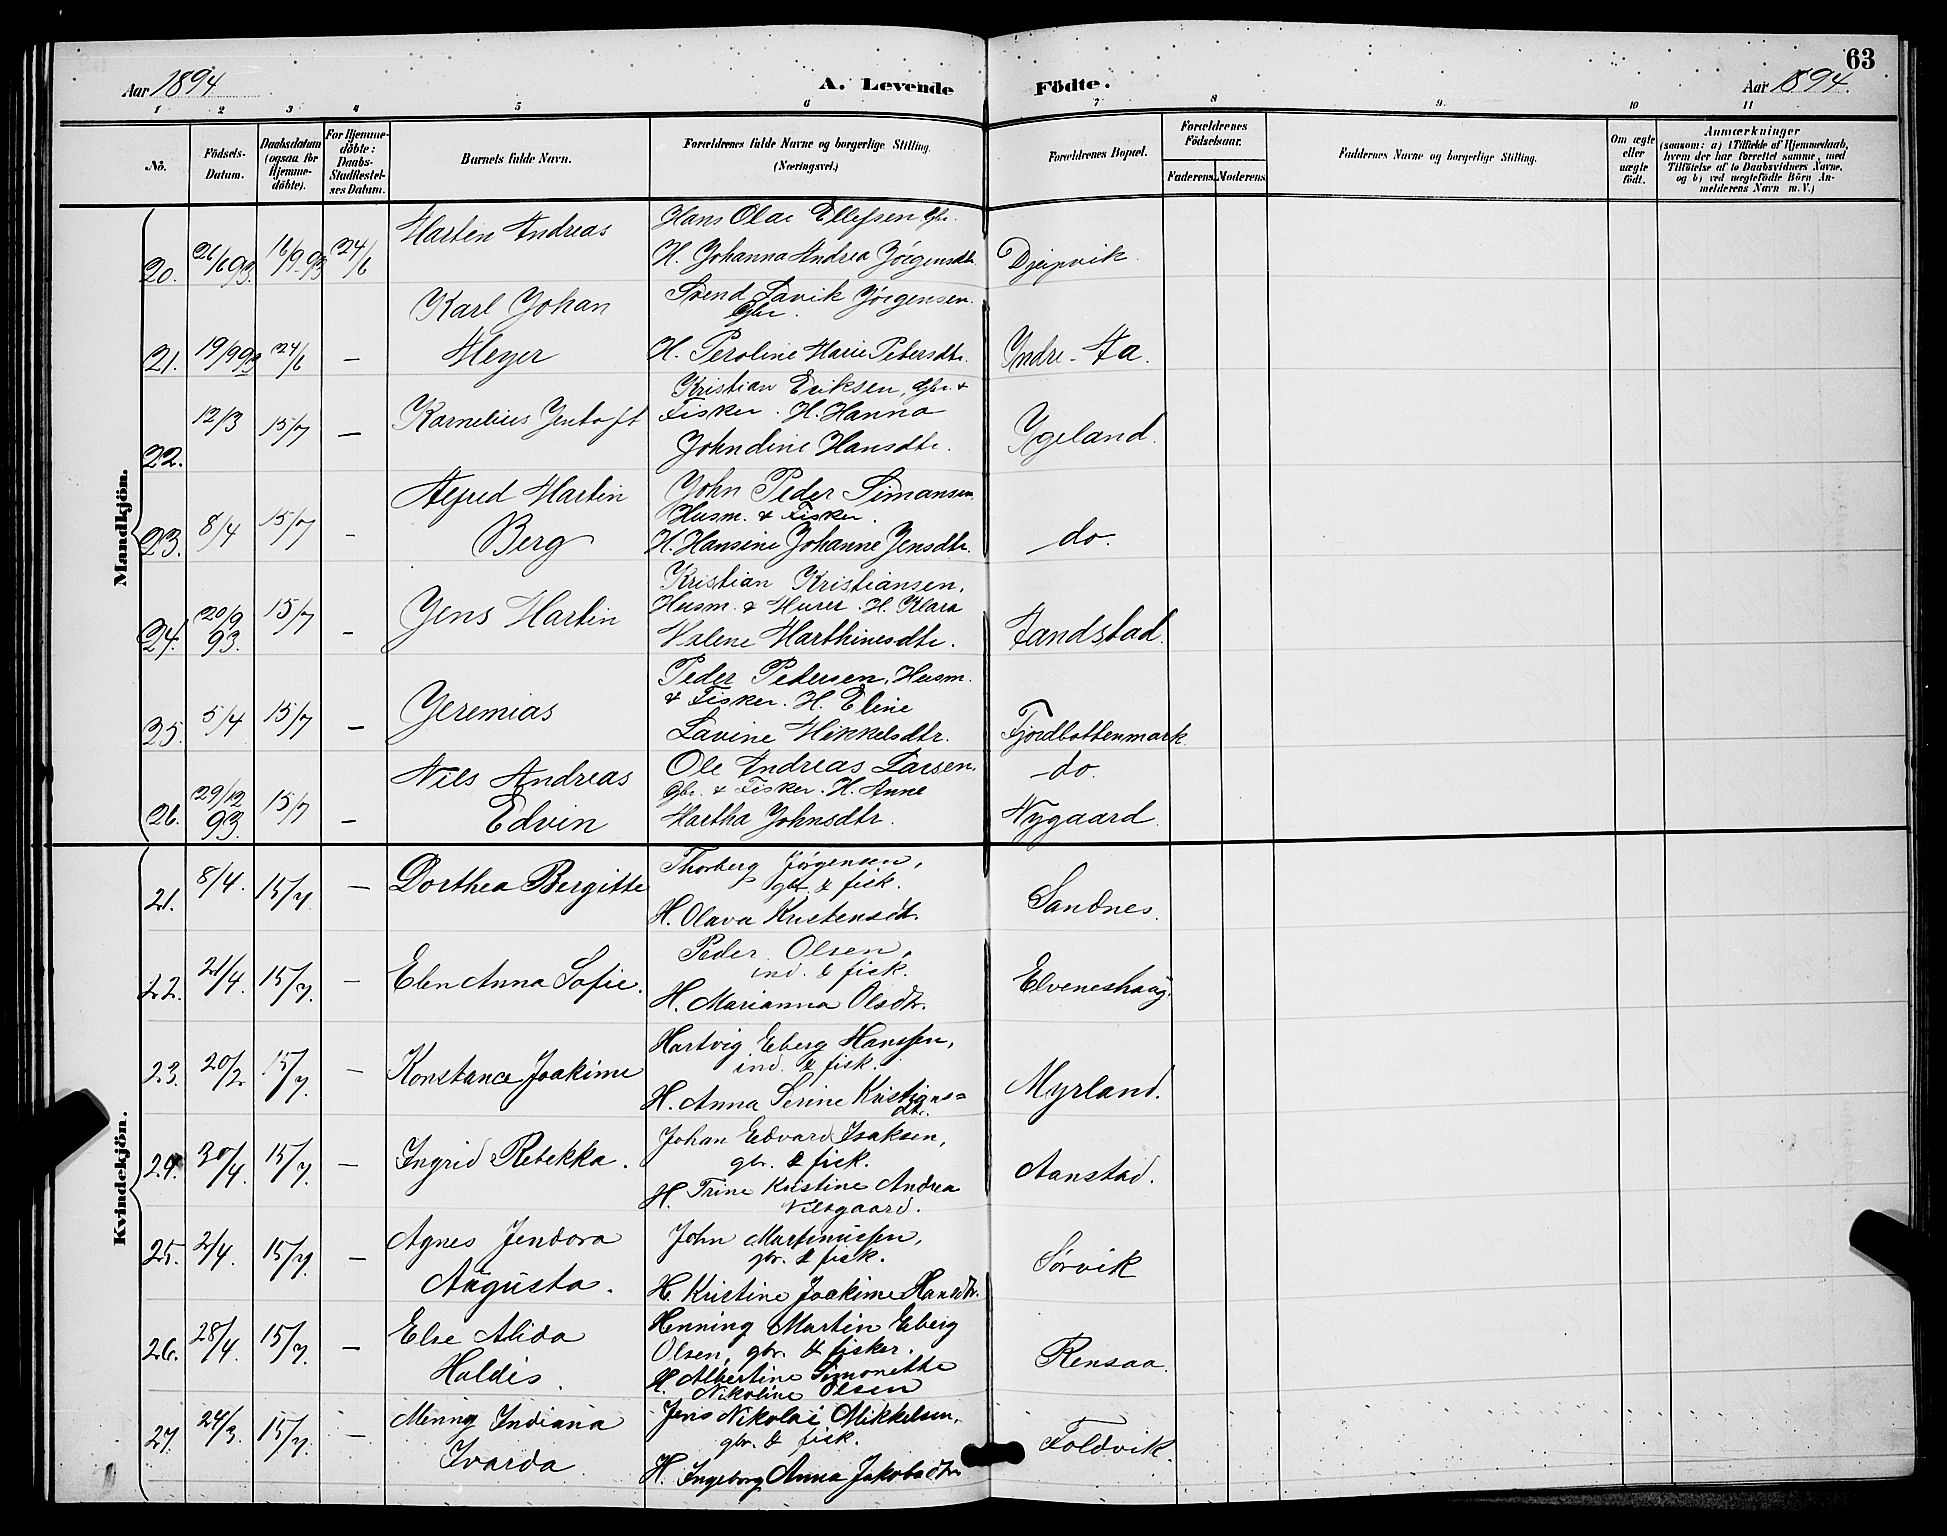 63
Aar 1894
A. Levende Födte.
Aar 1894.
1 2 3 4 5 6 7 8 9. 10 11
No.
Födsels-Datum.
Daabsdatum (ogsaa for Hjemme-döbte).
For Hjemme-döbte: Daabs-Stadfæstel-ses Datum.
Barnets fulde Navn.
Forældrenes fulde Navne og borgerlige Stilling. (Næringsvei.)
Forældrenes Bopæl.
Forældrenes Födselsaar.
Faderens. Moderens.
Faddernes Navne og borgerlige Stilling.
Om ægte eller uægte födt.
Anmærkninger
(saasom: a) i Tilfælde af Hjemmedaab,
hvem der har forrettet samme, med
Tilföielse af to Daabsvidners Navne,
og b) ved uægtefödte Börn An-
melderens Navn m. V.)
Mandkjön.
Martin Andreas Hans Olai Ellefsen Gbr.
20. 26/6 93. 16/9 93 24/6 H. Johanna Andrea Jörgensdtr. Djupvik
Karl Johan Svend Lavik Jörgensen
Gbr.
21. 19/9 93 24/6 – Meyer H. Peroline Marie Petersdtr. Indre-Aa.
Kristian Eriksen, Gbr. &
22. 12/3 15/7 – Kornelius Jentoft Fisker. H. Hanna Ygeland.
Johndine Hansdtr.
Alfred Martin John Peder Simonsen
Husm. & Fisker.
23. 8/4 15/7 – Berg H. Hansine Johanne Jensdtr. do.
Kristian Kristiansen,
Jens Martin Husm. & Murer. H. Klara
24. 20/9 93. 15/7 – Valene Marthinesdtr. Aandstad.
Peder Pedersen, Husm.
Jeremias & Fisker. H. Eline
25. 5/4 15/7 – Lavine Mikkelsdtr. Fjordbottenmark
Nils Andreas Ole Andreas Larsen, do.
Gbr. & Fisker. H. Anne
26. 29/12 93. 15/7 – Edvin Martha Johnsdtr. Nygaard
Kvindekjön.
Thorberg Jörgensen,
21. 8/4. 15/7. – Dorthea Bergitte gbr. & fisk. Sandnes.
H. Olava Kristensdt.
Peder Olsen,
22. 21/4. 15/7. – Elen Anna Sofie. ind. & fisk. Elveneshaug.
H. Marianna Olsdtr.
Hartvig Eberg Hanssen,
23. 20/2 15/7 – Konstance Joakime ind. & fisk. Myrland.
H. Anna Serine Kristians=
dtr.
Johan Edvard Isaksen,
24. 30/4. 15/7. – Ingrid Rebekka. gbr. & fisk. Aanstad.
H. Trine Kristine Andrea
Nilsgaard.
Agnes Jendora John Martinussen,
25. 2/4. 15/7. – gbr. & fisk. Sörvik
Augusta. H. Kristine Joakime Hansdtr.
Else Alida Henning Martin Eberg
26. 28/4. 15/7. – Olsen, gbr. & fisker. Rensaa.
Haldis. H. Albertine Simonette
Nikoline Olsen
Menny Indiana Jens Nikolai Mikkelsen,
27. 24/3. 15/7. – gbr. & fisk. Foldvik.
Ivarda H. Ingeborg Anna Jakobsdtr